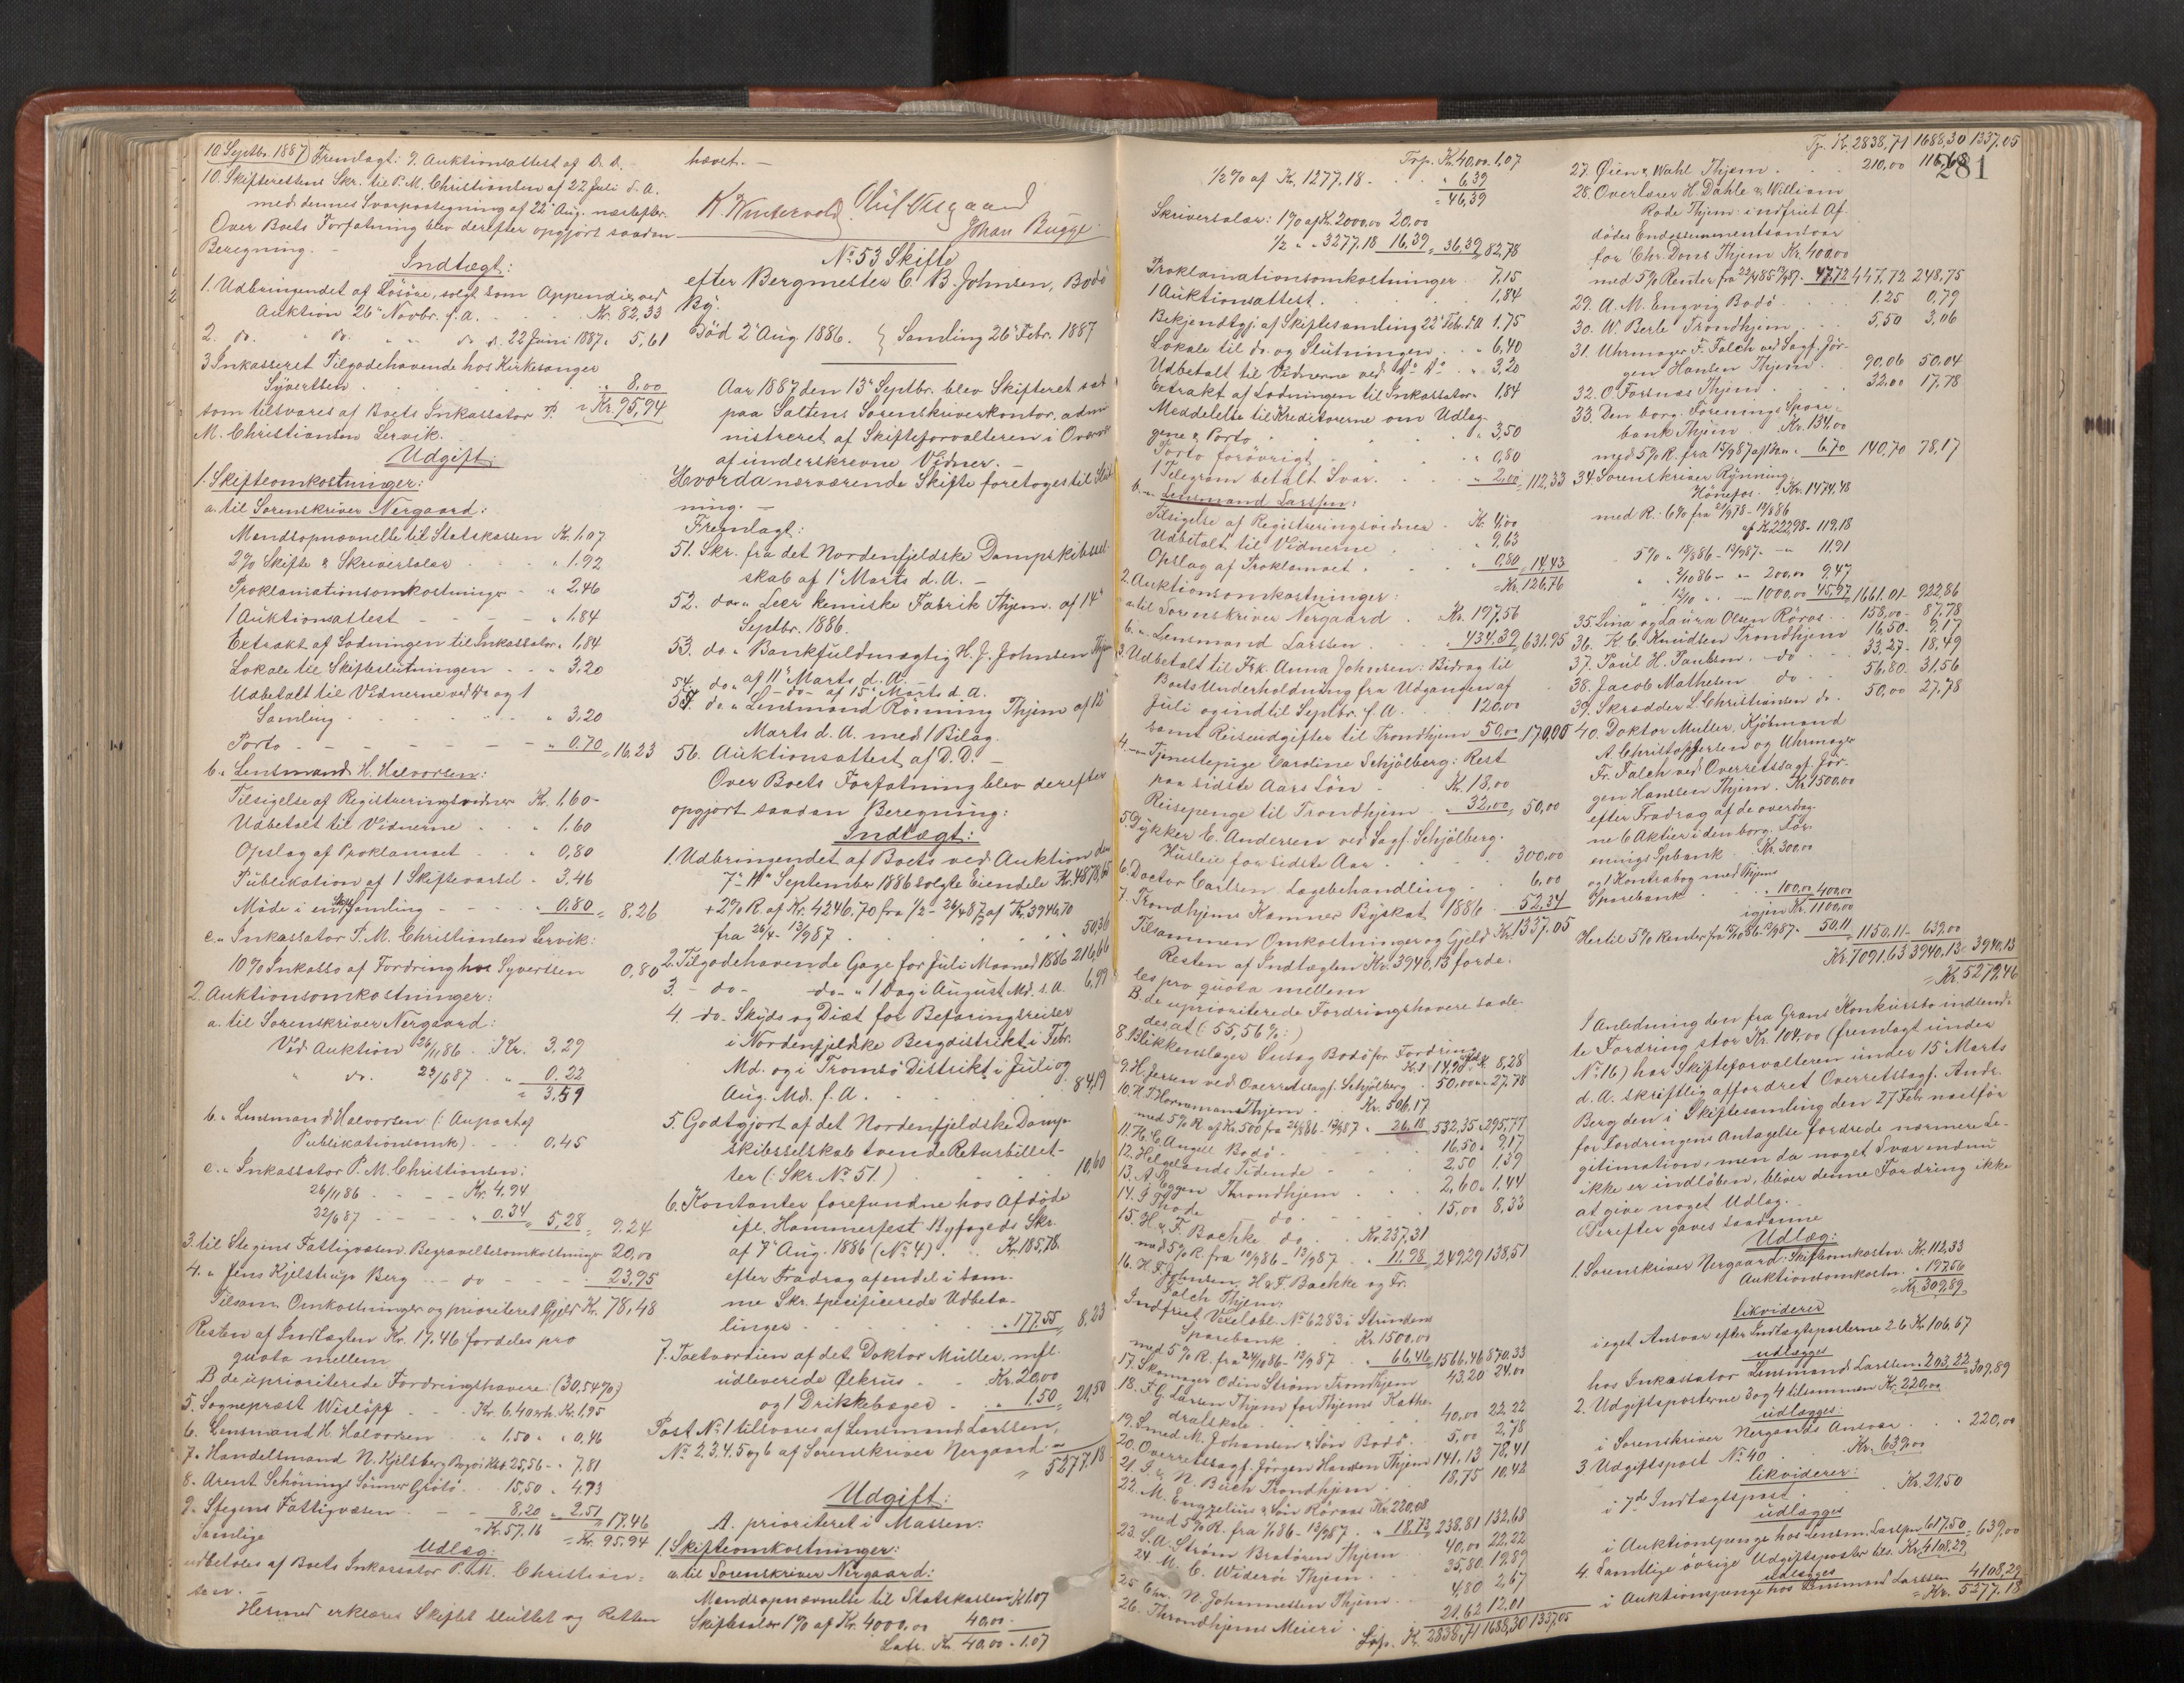 10. Septbr. 1887) Fremlagt: 9. Auktionsattest af D. D.
10. Skifterettens Skr. til P. M. Christiansen af 22 Juli d. A.
med dennes Svarpaategning af 22 Aug. næstefter.
Over Boets Forfatning blev derefter opgjort saadan
Beregning. -
Indtægt:
1. Udbringendet af Løsøre, solgt som Appendix ved
Auktion 26 Novbr. f. A. . . . Kr. 82,33
2. do. " do. " " do d. 22 Juni 1887 " 5,61
3 Inkasseret Tilgodehavende hos Kirkesanger
Syvertsen . . . . . " 8,00
som tilsvares af Boets Inkassator P. = Kr. 95,94
M. Christiansen Lervik.
Udgift:
1. Skifteomkostninger:
a. til Sorenskriver Nergaard:
Mandsopnævnelse til Statskassen Kr. 1,07
2% Skifte & Skriversalær - - " 1.92
Proklamationsomkostninger - " 2,46
1 Auktionsattest - - - - " 1,84
Extrakt af Lodningen til Inkassator " 1,84
Lokale til Skifteslutningen - - " 3.20
Udbetalt til Vidnerne ved do og 1
Samling - - - - - " 3,20
Porto - - - - - - " 0.70 = 16,23
b. " Lensmand H. Halvorsen:
Tilsigelse af Registreringsvidner Kr. 1,60 -
Udbetalt til Vidnerne . . " 1,60
Opslag af Proklamaet . . " 0,80
Publikation af 1 Skiftevarsel - 3,46
Møde i en Skfts. Samling - - - " 0,80 = 8,26
c. " Inkassator P. M. Christiansen Lervik:
10% Inkasso af Fordring hos Syvertsen 0,80
2. Auktionsomkostninger:
a. til Sorenskriver Nergaard:
Ved Auktion 26/11 86 . Kr. 3,29
" do. 23/6 87 . " 0.22
= 3,51
b. " Lensmand Halvorsen (: Anpart af
Publikationsomk) . . . 0.45
c. " Inkassator P. M. Christiansen:
26/11 86 . - - Kr. 4.94
22/6 87 - - - - " 0.34 = 5,28 = 9.24
3. til Stegens Fattigvæsen. Begravelsesomkostninger 20,00
4. " Jens Kjelstrup Berg - - do - - - 23,95
Tilsam. Omkostninger og prioriteret Gjeld Kr. 78,48
Resten af Indtægten Kr. 17.46 fordeles pro
quota mellem
B de uprioriterede Fordringshavere: (30,54%)
5. Sogneprest Wisløff . . Kr. 6.40 erh. Kr. 1,95
6. Lensmand H. Halvorsen " 1,50 " " 0,46
7. Handelsmand N. Kjelsberg 25,56 - " 7,81
8. Arent Schønings Sønner Grøtø . . 15,50 " 4.73
9. Stegens Fattigvæsen - - 8.20 " 2,51 = 17,46
Samlige = Kr. 57.16 = Kr. 95.94
Udlæg:
udbetales af Boets Inkassator P. M. Christian-
sen. -
Hermed erklæres Skiftet sluttet og Retten
hævet. -
K. Wintervold Oluf Nergaard
Johan Bugge
No 53 Skifte
efter Bergmester C. B. Johnsen, Bodø
By.
Død 2 Aug 1886. } Samling 26 Febr. 1887
Aar 1887 den 13 Septbr. blev Skifteret sat
paa Saltens Sorenskriverkontor, admi
nistreret af Skifteforvalteren i Overvær
af underskrevne Vidner. -
Hvorda nærværende Skifte foretoges til Slut
ning. -
Fremlagt:
51. Skr. fra det Nordenfjeldske Dampskibssel-
skab af 1 Marts d. A. -
52. do " Leer kemiske Fabrik Thjem. af 14
Septbr. 1886.
53. do " Bankfuldmægtig H. J. Johnsen Thjem
af 11 Marts d. A.
54. do " - do - af 15 Marts d. A.
55. do " Lensmand Rønning Thjem af 12
Marts d. A. med 1 Bilag.
56. Auktionsattest af D. D. -
Over Boets Forfatning blev derefter
opgjort saadan Beregning:
Indtægt:
1. Udbringendet af Boets ved Auktion den
7 - 11 September 1886 solgte Eiendele Kr. 4878,65
+ 2% R. af Kr. 4246,70 fra 1/2 - 26/4 87 af Kr. 3946,70
fra 26/4 - 13/9 87 . . . . . " 50,36
2. Tilgodehavende Gage for Juli Maaned 1886 216,66
3. - do - - do - " 1 Dag i August Md. s. A. 6,99
4. do - Skyds og Diæt for Befaringsreiser
i Nordenfjeldske Bergdistrikt i Febr.
Md. og i Tromsø Distrikt i Juli og
Aug. Md. f. A. . . . . 84,19
5. Godtgjort af det Nordenfjeldske Damp-
skibsselskab tvende Returbillet-
ter (: Skr. No 51.) . . . 10,60
6. Kontanter forefundne hos Afdøde
ifl. Hammerfest Byfogeds Skr.
af 7 Aug. 1886 (No 4) . . Kr. 185,78.
efter Fradrag af endel i sam-
me Skr. specificerede Udbeta-
linger - . . . . " 177.55 = 8,23
7. Taxtværdien af det Doktor Müller, mfl.
udleverede Ølkrus . . Kr. 20,00
og 1 Drikkebæger - " 1.50 = 21,50
Post No 1 tilsvares af Lensmand Larssen,
No 2.3.4.5 og 6 af Sorenskriver Nergaard =
" 5277,18
Udgift:
A. prioriteret i Massen:
1. Skifteomkostninger:
a. til Sorenskriver Nergaard:
Mandsopnævnelse til Statskassen Kr. 1.07
Skiftesalær 1% af Kr. 4000,00 40,00 -
Latr. Kr. 40,00 - 1,07
Trp. Kr. 40,00. 1,07
1/2% af Kr. 1277.18 - . . " 6,39
= 46,39
Skriversalær: 1% af Kr. 2000,00 20,00
1/2 " " 3277.18 16,39 = 36,39 = 82,78
Proklamationsomkostninger 7,15
1 Auktionsattest . . . . 1,84
Bekjendtgj. af Skiftesamling 22 Febr. d. A. 1,75
Lokale til do. og Slutningen . . " 6,40
Udbetalt til Vidnerne ved do do . " 3,20
Extrakt af Lodningen til Inkassator " 1,84
Meddelelse til Kreditorerne om Udlæg-
gene & Porto . . . . " 3,50
Porto forøvrigt . . . " 0,80
1 Telegram betalt Svar . . " 2,00 = 112,33
b. " Lensmand Larssen:
Tilsigelse af Registreringsvidner . Kr. 4,00
Udbetalt til Vidnerne . . . " 9,63
Opslag af Proklamaet . . " 0,80 = 14,43
= Kr. 126,76
2. Auktionsomkostninger:
a. til Sorenskriver Nergaard . Kr. 197,56
b. " Lensmand Larssen . . " 434,39 = 631,95
3. Udbetalt til Frk. Anna Johnsen: Bidrag til
Boets Underholdning fra Udgangen af
Juli og indtil Septbr. f. A. . . 120,00
samt Reiseudgifter til Trondhjem 50,00 = 170,00
4. - Tjenestepige Caroline Schjølberg: Rest
paa sidste Aars Løn . . Kr. 18,00
Reisepenge til Trondhjem " 32,00 = 50,00
5. Dykker E. Andersen ved Sagf. Schjølberg.
Husleie for sidste Aar . . . 300,00
6. Doctor Carlsen. Lægebehandling . . 6,00
7. Trondhjems Kæmner Byskat 1886 . 52,34
Tilsammen Omkostninger og Gjeld Kr. 1337.05
Resten af Indtægten Kr. 3940,13 forde-
les pro quota mellem
B. de uprioriterede Fordringshavere saale-
des at (: 55,56%:)
8. Blikkenslager Bodø for Fordring
Kr. 14,90 Udl. Kr. 8,28
9. H. Jersen ved Overretssagf. Schjølberg . 50,00 " 27,78
10. H. T. Hornemann Thjem . Kr. 506.17
med 5% R. af Kr. 500 fra 26/8 86 - 13/9 87 " 26,18 532,35 " 295,77
11. H. C. Angell Bodø . . . 16,50 " 9,17
12. Helgelands Tidende - - 2,50 1,39
13. A. S. Eggen Throndhjem . . 2,60 " 1,44
14. J. Thode do - - - 15,00 8,33
15. H. & F. Bachke do . Kr. 237,31
med 5% R. fra 19/9 86 - 13/9 87 . " 11.98 = 249,29 138,51
16. H. F. Johnsen, H & F. Bachke og Fr.
Falch Thjem:
Indfriet Vexelobl. No 6283 i Strindens
Sparebank . . Kr. 1500,00
med 5% R. fra 24/10 86 - 13/9 87 . " 66,46 = 1566,46 870,33
17. Skomager Odin Strøm Trondhjem 43.20 24.00
18. F. G. Larsen Thjem for Thjems Kathe-
dralskole . . . . 40,00 22,22
19. Smed M. Johansen & Søn Bodø . 5,00 2,78
20. Overretssagf. Jørgen Hansen Thjem 141,13 78,41
21. J. & N. Buch Trondhjem . . 18,75 10,42
22. M. Engzelius & Søn Røraas Kr. 220,08
med 5% R. fra 1/1 86 - 13/9 87 . " 18,73 = 238,81 132,68
23. S. A. Strøm Bratøren Thjem . . 40,00 22,22
24. M. C. Widerøe Thjem . . . 35,80 19,89
25. Chr. N. Johannessen Thjem . . 4,80 2,67
26. Throndhjems Meieri . . 21,62 12,01
Trsp. Kr. 2838,71 1688,30 1337,05
Tr. Kr. 2838,71 1688,30 1337.05
281
27. Øien & Wahl Thjem . . 210,00 116,68
28. Overlærer H. Dahle & William
Rode Thjem: indfriet Af-
dødes Endossementsansvar
for Chr. Dons Thjem Kr. 400,00
med 5% Renter fra 23/4 85 - 13/9 87 - 47.72 447,72 248,75
29. A. M. Engvig Bodø . . . 1,25 0,79
30. W. Berle Trondhjem . . 5,50 3,06
31. Uhrmager F. Falch ved Sagf. Jør-
gen Hansen Thjem . . 90,06 50,04
32. O. Forsnæs Thjem . . 32,00 17,78
33. Den borg. Forenings Spare-
bank Thjem . Kr. 134,00
med 5% R. fra 15/9 87 af Kr. " 6,70 140,70 78,17
34. Sorenskriver Rynning
Hønefos . Kr. 1474,48
med R. 6% fra 21/9 78 - 18/8 86
af Kr. 222,98 - 119,18
5% " 18/8 86 - 13/9 87 - " 11.91
" " 2/10 86 - " - 200,00 9,47
" 12/10 - " - 1000,00 45,97 = 1661.01 - 922,86
35. Lina og Laura Olsen Røros . . 158,00 - 87,78
36. K. C. Knudsen Trondhjem 16,50 - 9,17
37. Paul H. Paulsen . do . . 33,27 - 18,49
38. Jacob Mathesen do . . 56,80 - 31,56
39. Skrædder L. Christiansen do . 50,00 27,78
40. Doktor Müller, Kjøbmand
A. Christophersen og Uhrmager
Fr. Falch ved Overretssagf. Jør-
gen Hanssen Thjem . Kr. 1500,00
efter Fradrag af de overdrag-
ne 6 Aktier i den borg. For-
enings Spbank . Kr. 300,00
og 1 Kontrabog med Thjems
Sparebank . . . " 100,00 = 400,00
igjen Kr. 1100,00
Hertil 5% Renter fra 12/10 86 - 13/9 87 " 50,11 = 1150,11 - 639,00
Kr. 7091,63 3940,13 = 3940,13
= Kr. 5277,18
I Anledning den fra Grans Konkursbo indsend-
te Fordring stor Kr. 104,00 (fremlagt under
No 16) har Skifteforvalteren under 15 Marts
d. A. skriftlig affordret Overretssagf. Andr.
Berg den i Skiftesamling den 27 Febr næstfør
for Fordringens Antagelse fordrede nærmere Le-
gitimation, men da noget Svar endnu
ikke er indløben, bliver denne Fordring ikke
at give noget Udlæg.
Derefter gaves saadanne
Udlæg:
1. Sorenskriver Nergaard: Skifteomkostn. Kr. 112,33
Auktionsomkostn. " 197,56
= Kr. 309,89
likviderer
i eget Ansvar efter Indtægtsposterne 2-6 Kr. 106,67
udlægges
hos Inkassator Lensmand Larssen . 203,22 = 309,89
2. Udgiftsposterne 3 og 4 tilsammen Kr. 220,00
udlægges:
i Sorenskriver Nergaards Ansvar . . " 220,00
3. Udgiftspost No 40 . . Kr. 639,00
likviderer:
i 7de Indtægtspost . . Kr. 21,50
udlægges
i Auktionspenge hos Lensm. Larssen 617,50 = 639,00
4. Samtlige øvrige Udgiftsposter tils. Kr. 4108,29
udlægges
i Auktionspenge hos Lensmand Larssen 4108,29
= Kr. 5277,18